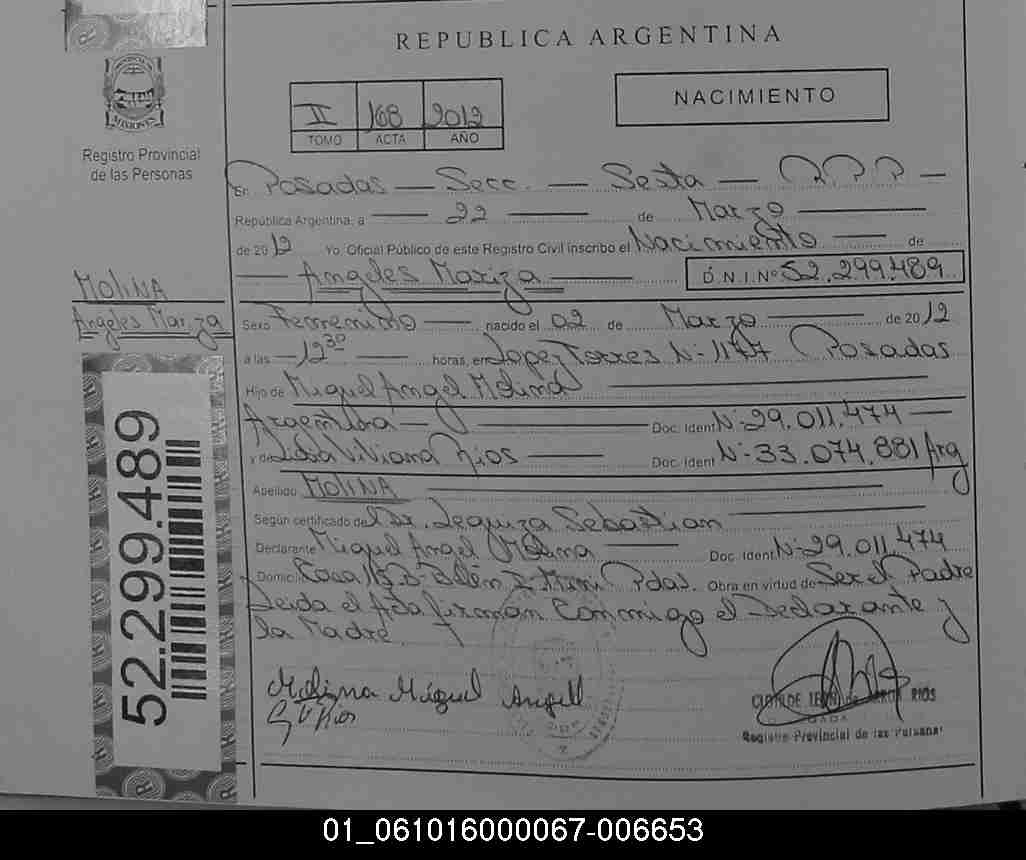 REPUBLICA ARGENTINA
II 168 2012
TOMO ACTA AÑO
NACIMIENTO
MISIONES
Registro Provincial
de las Personas
En Posadas — Secc. — Sesta — RPP —
República Argentina, a — 22 — de Marzo —
de 2012 Yo, Oficial Público de este Registro Civil inscribo el Nacimiento — de
— Angeles Mariza — D.N.I. Nº 52.299.489
MOLINA
Angeles Mariza
Sexo Femenino — nacido el 02 de Marzo — de 2012
a las — 12 30 — horas, en Lopez Torres Nº 1177 Posadas
Hijo de Miguel Angel Molina —
Argentina — Doc. Ident Nº 29.011.474 —
y de Lidia Viviana Rios — Doc. Ident Nº 33.074.881 Arg
Apellido MOLINA —
Según certificado de Dr. Leguiza Sebastian —
Declarante Miguel Angel Molina — Doc. Ident. Nº 29.011.474
Domicilio Casa 113 B- Belén Pdas. Obra en virtud de Ser el Padre
Leida el Acta firman Conmigo el Declarante y
la Madre
Molina Miguel Angel
RIOS
Registro Provincial de las Personas
52.299.489
01_061016000067-006653